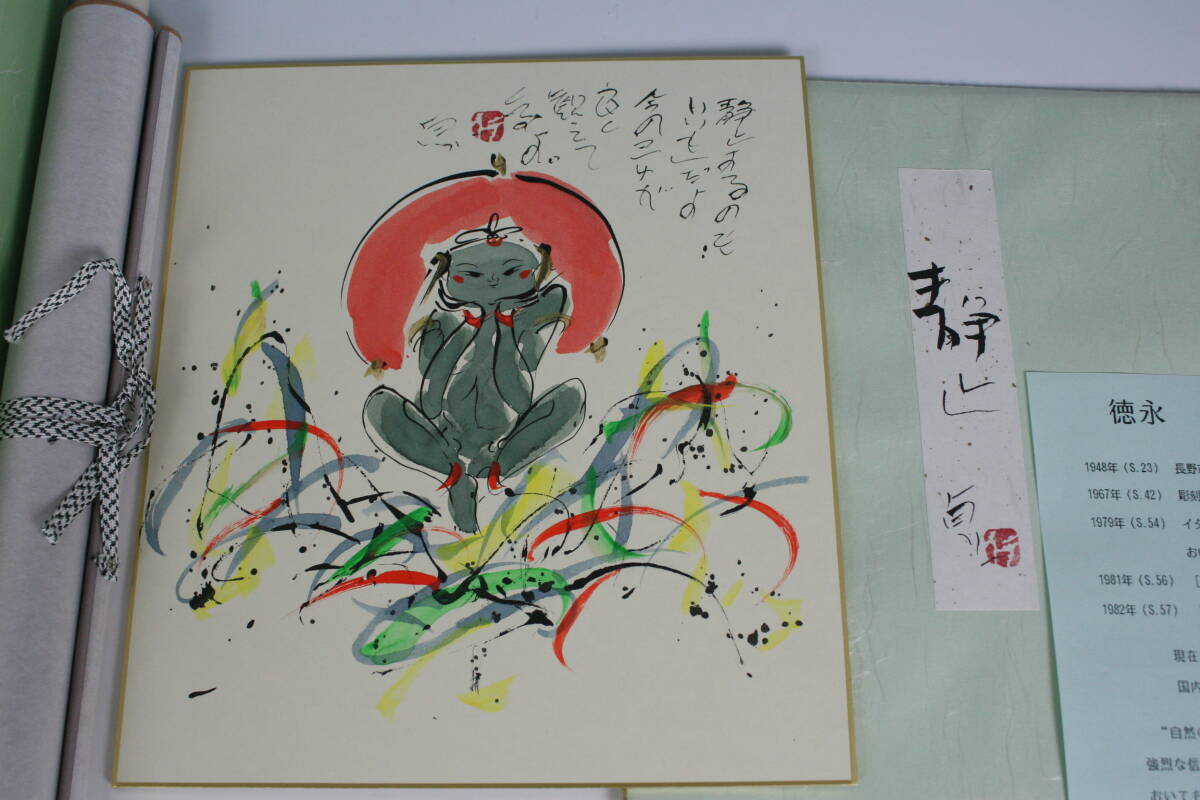 静止するのも
いいもんだよ
今の
良く
観えて
静止
徳永
1948年（S.23） 長野
1967年（S.42） 彫刻
1979年（S.54） イタ
お
1981年（S.56） [
1982年（S.57）
現在
国内
“自然の
強烈な信
おいても